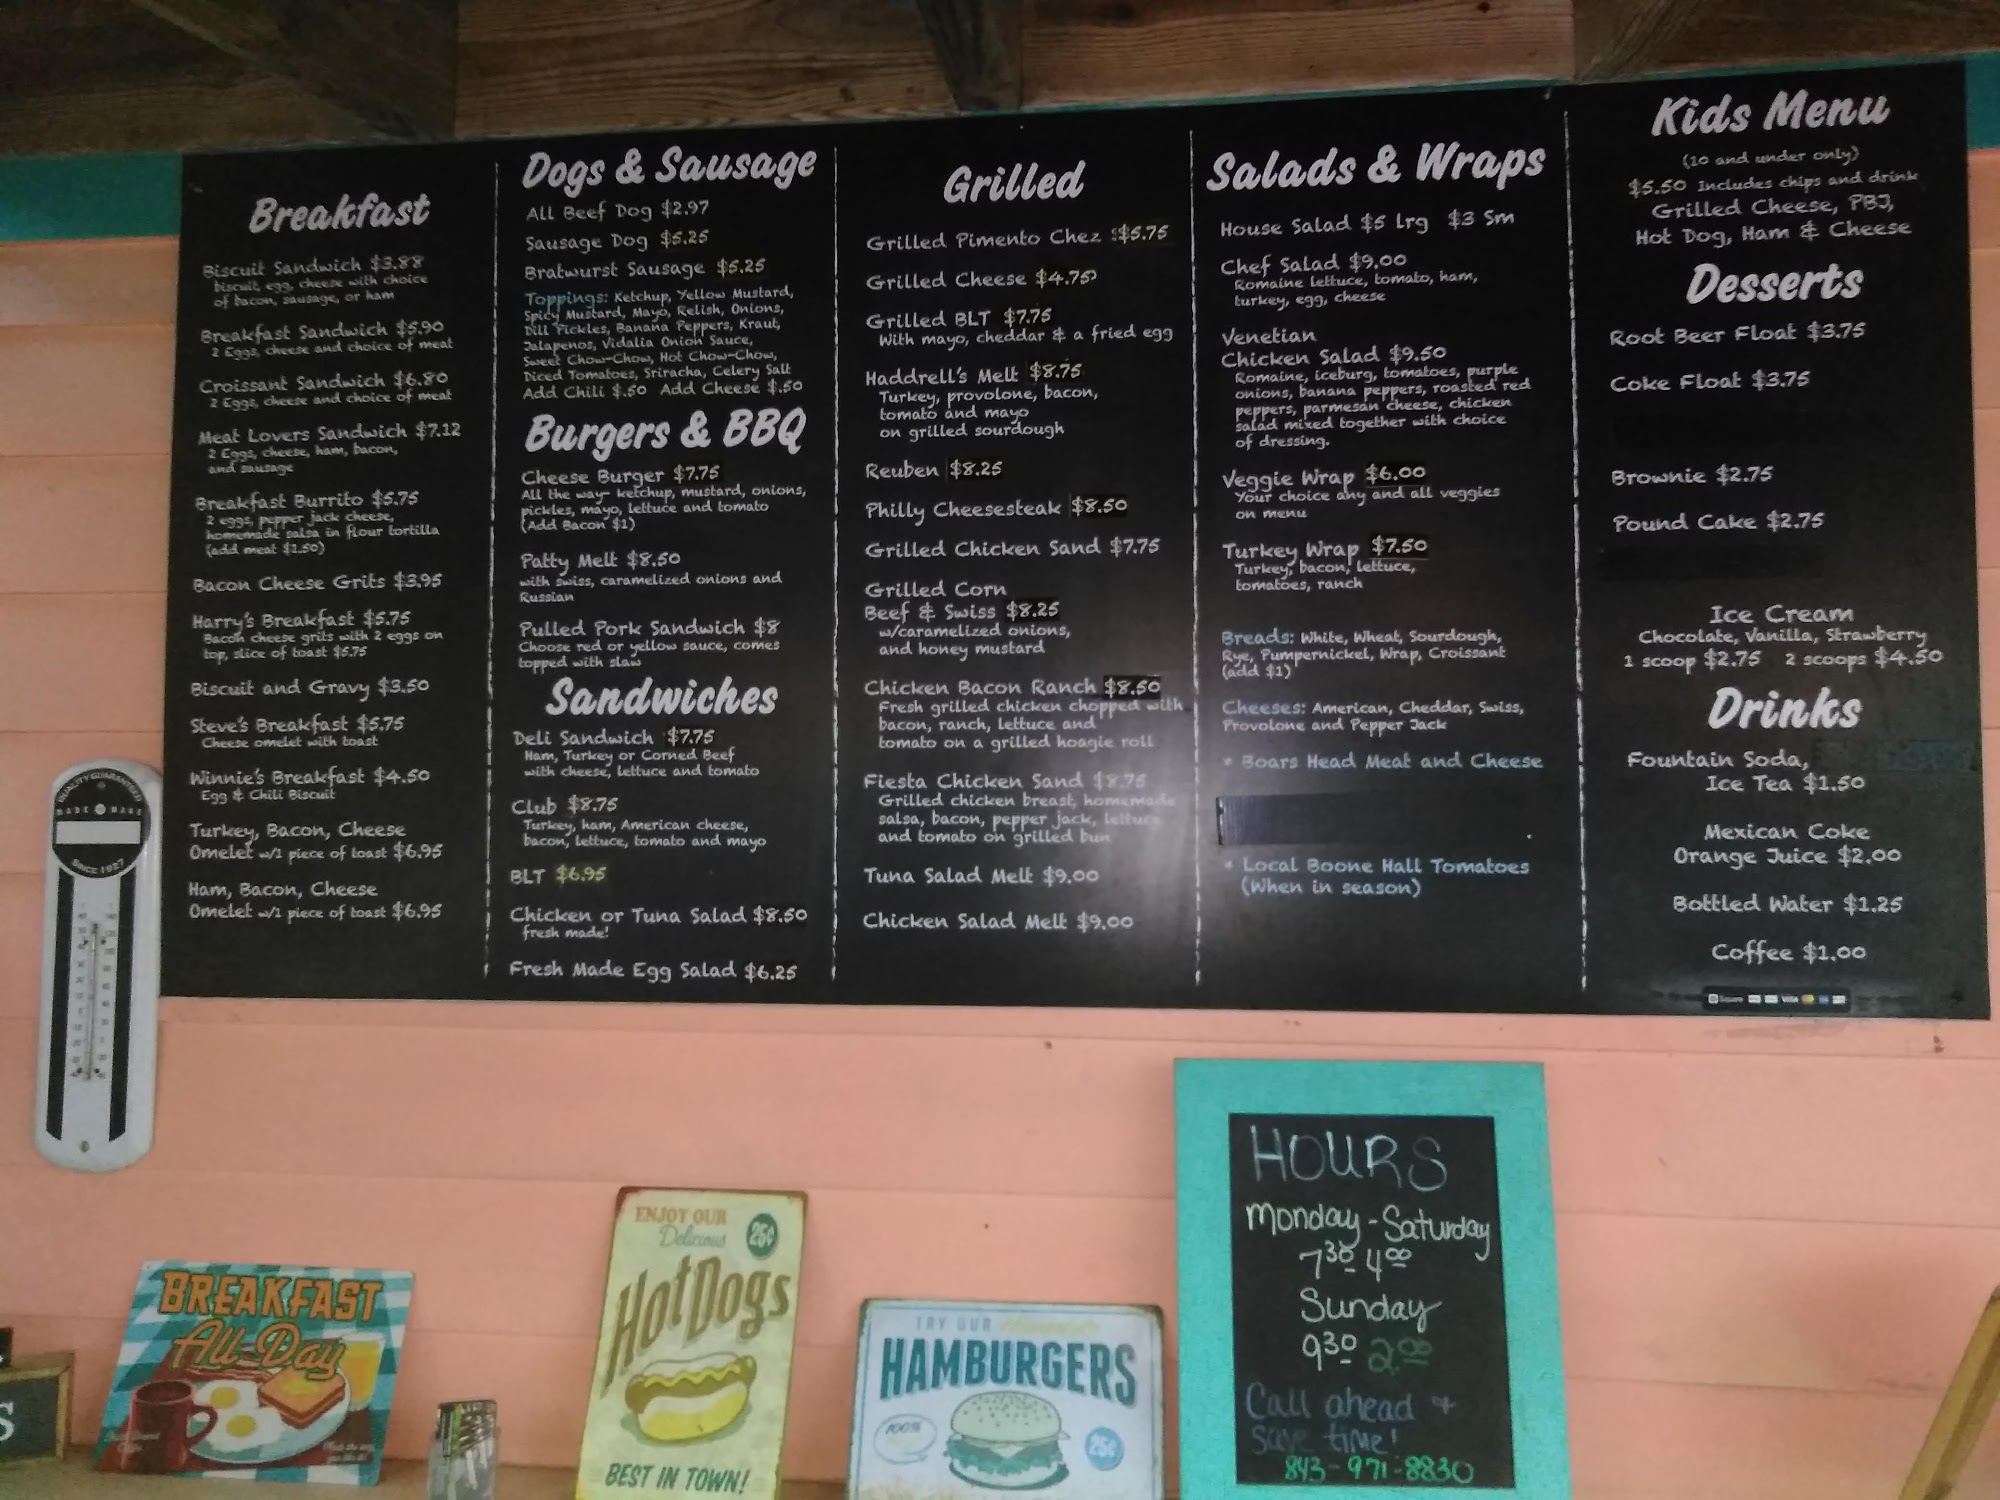 Breakfast
Biscuit Sandwich $3.88
biscuit, egg, cheese with choice
of bacon, sausage, or ham
Breakfast Sandwich $5.90
2 Eggs, cheese and choice of meat
Croissant Sandwich $6.80
2 Eggs, cheese and choice of meat
Meat Lovers Sandwich $7.12
2 Eggs, cheese, ham, bacon,
and sausage
Breakfast Burrito $5.75
2 eggs, pepper jack cheese,
homemade salsa in flour tortilla
(add meat $1.50)
Bacon Cheese Grits $3.95
Harry's Breakfast $5.75
Bacon cheese grits with 2 eggs on
top, slice of toast $5.75
Biscuit and Gravy $3.50
Steve's Breakfast $5.75
Cheese omelet with toast
Winnie's Breakfast $4.50
Egg & Chili Biscuit
Turkey, Bacon, Cheese
Omelet w/1 piece of toast $6.95
Ham, Bacon, Cheese
Omelet w/1 piece of toast $6.95
Dogs & Sausage
All Beef Dog $2.97
Sausage Dog $5.25
Bratwurst Sausage $5.25
Toppings: Ketchup, Yellow Mustard,
Spicy Mustard, Mayo, Relish, Onions,
Dill Pickles, Banana Peppers, Kraut,
Jalapenos, Vidalia Onion Sauce,
Sweet Chow-Chow, Hot Chow-Chow,
Diced Tomatoes, Sriracha, Celery Salt
Add Chili $.50 Add Cheese $.50
Burgers & BBQ
Cheese Burger $7.75
All the way- ketchup, mustard, onions,
pickles, mayo, lettuce and tomato
(Add Bacon $1)
Patty Melt $8.50
with swiss, caramelized onions and
Russian
Pulled Pork Sandwich $8
Choose red or yellow sauce, comes
topped with slaw
Sandwiches
Deli Sandwich $7.75
Ham, Turkey or Corned Beef
with cheese, lettuce and tomato
Club $8.75
Turkey, ham, American cheese,
bacon, lettuce, tomato and mayo
BLT $6.95
Chicken or Tuna Salad $8.50
fresh made!
Fresh Made Egg Salad $6.25
Grilled
Grilled Pimento Chez $5.75
Grilled Cheese $4.75
Grilled BLT $7.75
With mayo, cheddar & a fried egg
Haddrell's Melt $8.75
Turkey, provolone, bacon,
tomato and mayo
on grilled sourdough
Reuben $8.25
Philly Cheesesteak $8.50
Grilled Chicken Sand $7.75
Grilled Corn
Beef & Swiss $8.25
w/caramelized onions,
and honey mustard
Chicken Bacon Ranch $8.50
Fresh grilled chicken chopped with
bacon, ranch, lettuce and
tomato on a grilled hoagie roll
Fiesta Chicken Sand $8.75
Grilled chicken breast, homemade
salsa, bacon, pepper jack, lettuce
and tomato on grilled bun
Tuna Salad Melt $9.00
Chicken Salad Melt $9.00
Salads & Wraps
House Salad $5 lrg $3 Sm
Chef Salad $9.00
Romaine lettuce, tomato, ham,
turkey, egg, cheese
Venetian
Chicken Salad $9.50
Romaine, iceburg, tomatoes, purple
onions, banana peppers, roasted red
peppers, parmesan cheese, chicken
salad mixed together with choice
of dressing.
Veggie Wrap $6.00
Your choice any and all veggies
on menu
Turkey Wrap $7.50
Turkey, bacon, lettuce,
tomatoes, ranch
Breads: White, Wheat, Sourdough,
Rye, Pumpernickel, Wrap, Croissant
(add $1)
Cheeses: American, Cheddar, Swiss,
Provolone and Pepper Jack
* Boars Head Meat and Cheese
* Local Boone Hall Tomatoes
(When in season)
Kids Menu
(10 and under only)
$5.50 Includes chips and drink
Grilled Cheese, PBJ,
Hot Dog, Ham & Cheese
Desserts
Root Beer Float $3.75
Coke Float $3.75
Brownie $2.75
Pound Cake $2.75
Ice Cream
Chocolate, Vanilla, Strawberry
1 scoop $2.75 2 scoops $4.50
Drinks
Fountain Soda,
Ice Tea $1.50
Mexican Coke
Orange Juice $2.00
Bottled Water $1.25
Coffee $1.00
Square VISA
QUALITY GUARANTEED
SINCE 1927
BREAKFAST
All-Day
ENJOY OUR
Delicious
25¢
Hot Dogs
BEST IN TOWN!
TRY OUR
HAMBURGERS
100%
25¢
HOURS
Monday-Saturday
7:30-4:00
Sunday
9:30 2:00
Call ahead +
save time!
843-971-8830
S